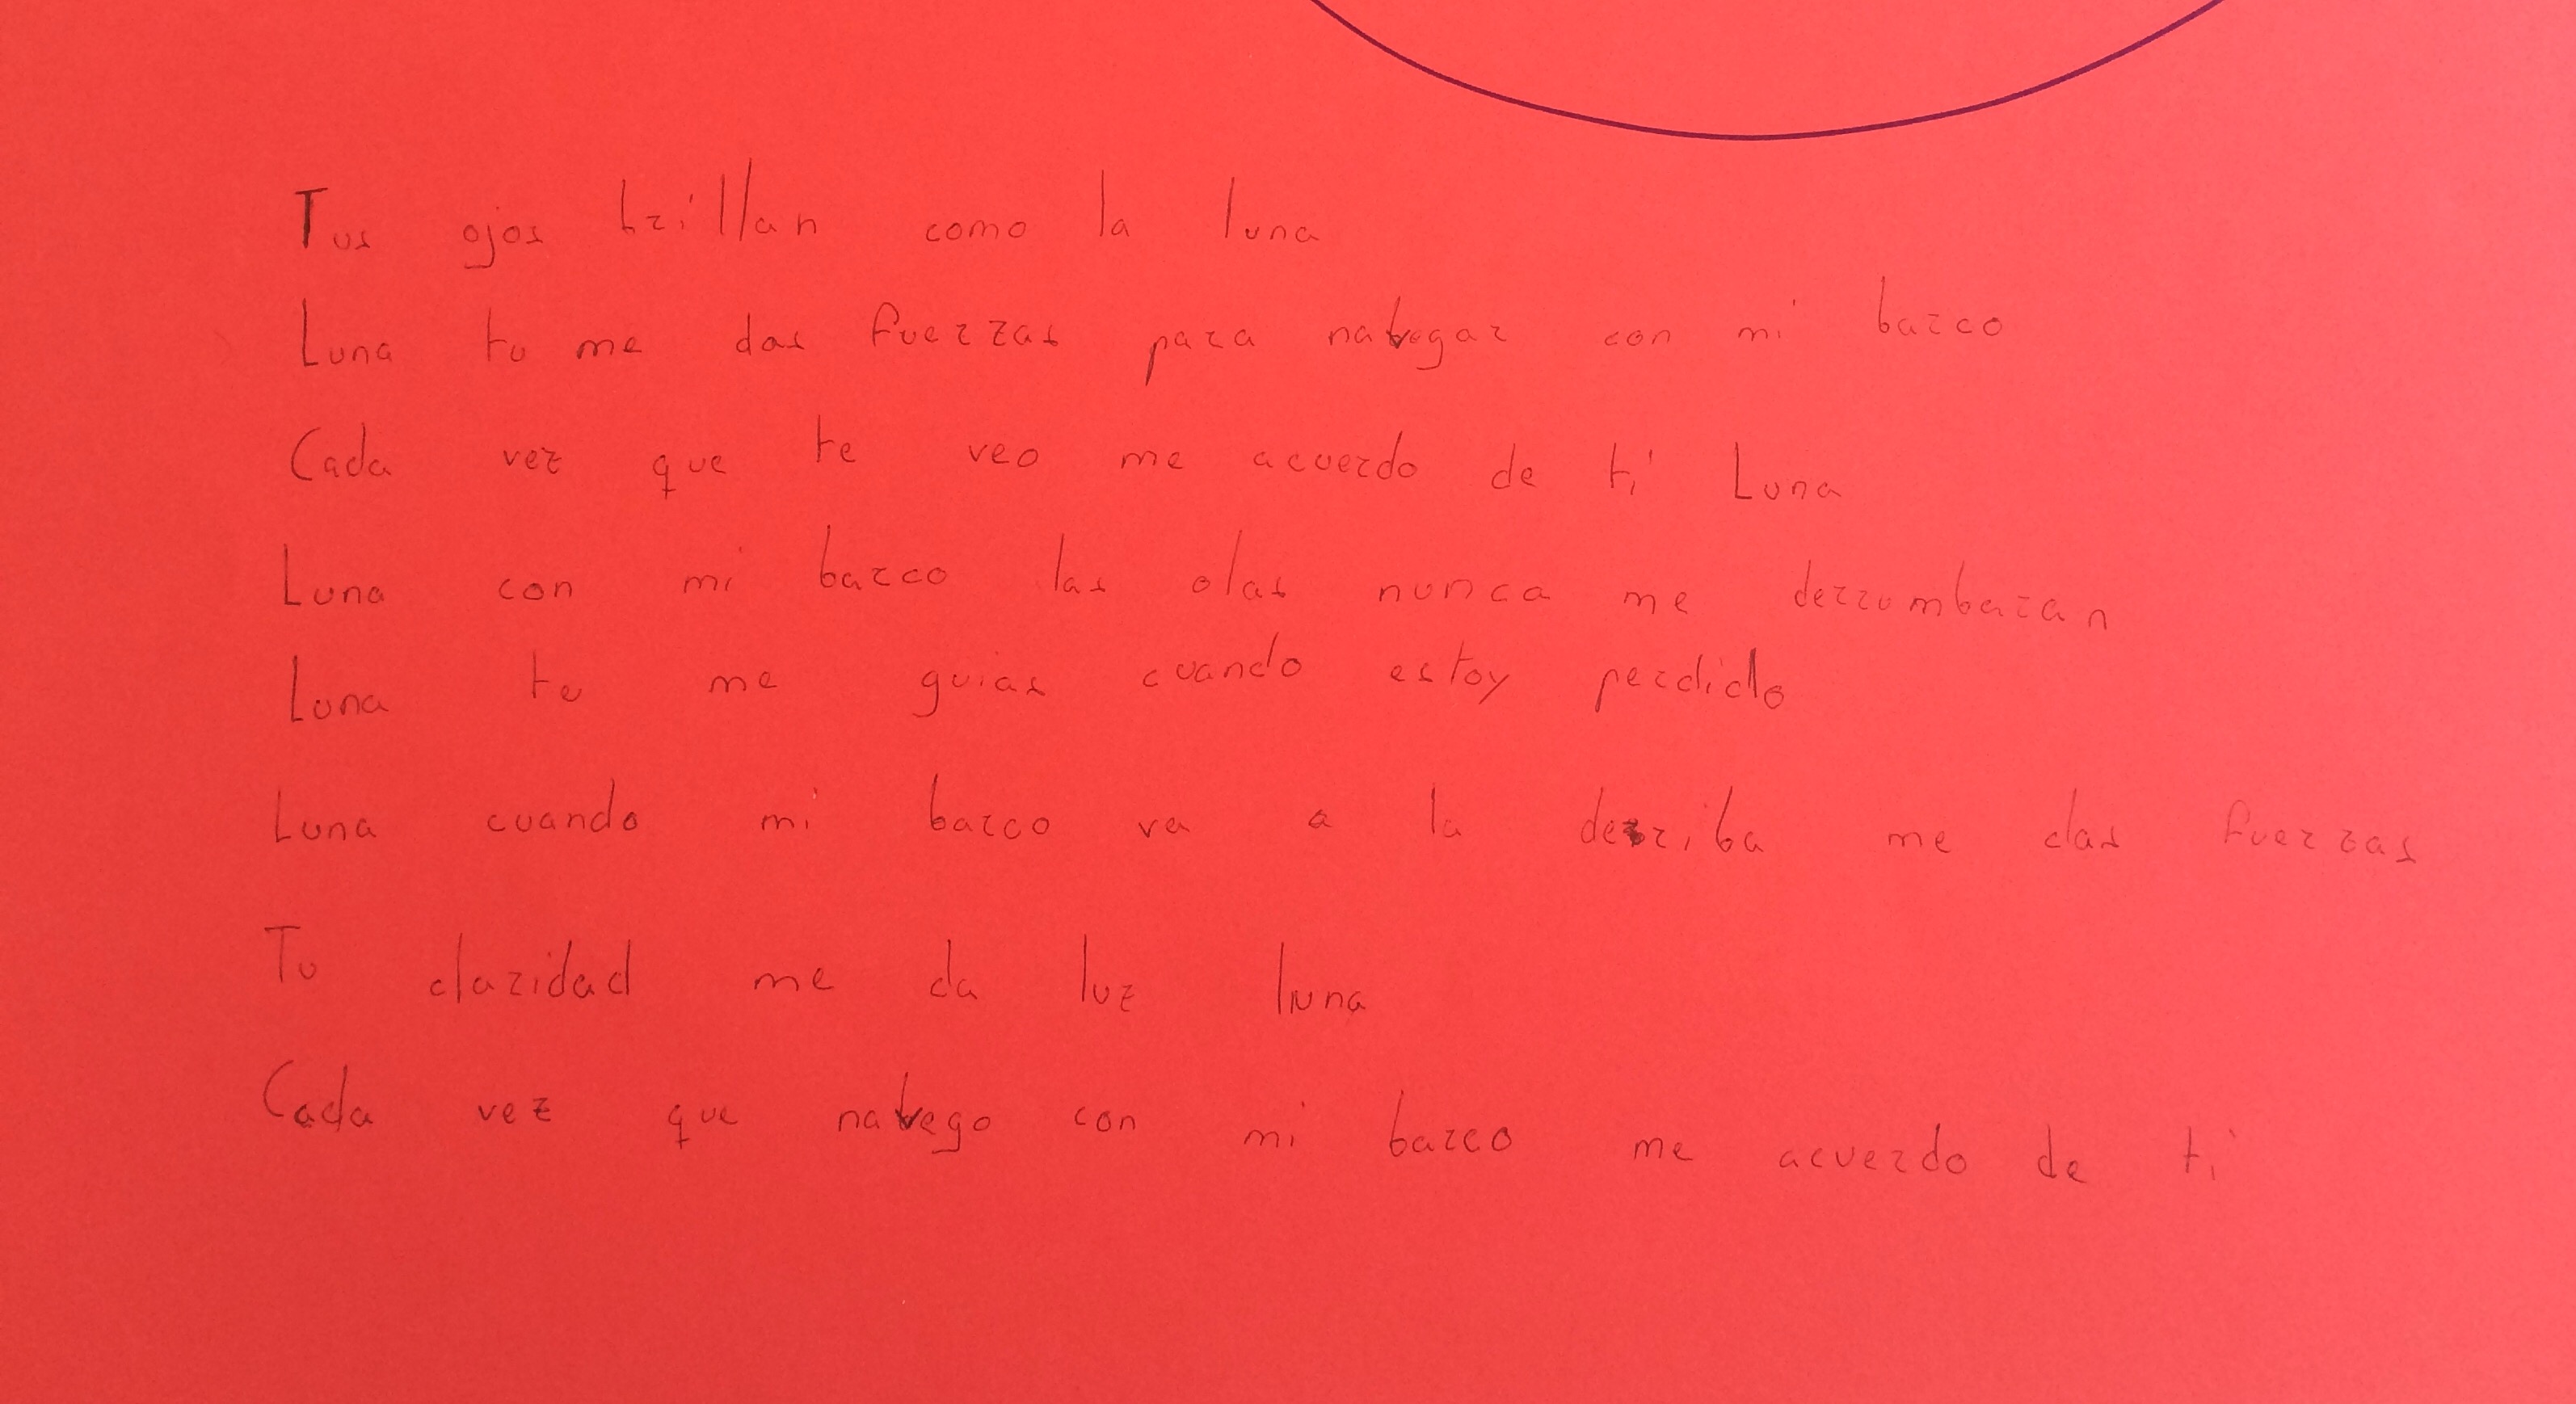 Tus ojos brillan como la luna
Luna tu me das fuerzas para navegar con mi barco
Cada vez que te veo me acuerdo de ti Luna
Luna con mi barco las olas nunca me derrumbaran
Luna tu me guias cuando estoy perdido
Luna cuando mi barco va a la derriba me das fuerzas
Tu claridad me da luz luna
Cada vez que navego con mi barco me acuerdo de ti